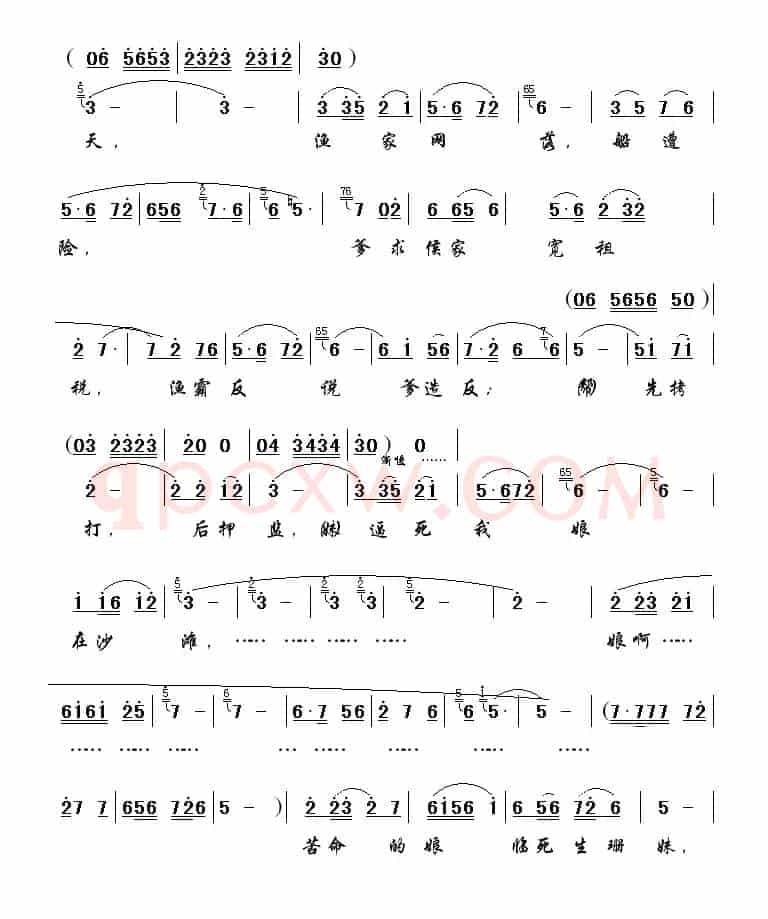 (06 5653 2323 2312 30)
5 3 - 3 - 3 35 2 1 5·6 72 65 6 - 3 5 7 6
天, 渔 家 网 落, 船 遭
5·6 72 656 2 7·6 5 6 5· 76 7 02 6 65 6 5·6 2 32
险, 爹 求 侯 家 宽 租
(06 5656 50)
2 7· 7 2 76 5·6 72 65 6 - 6 1 56 7·2 6 7 6 5 - 51 71
税, 渔 霸 反 说 爹 造 反; 先 拷
(03 2323 20 0 04 3434 30) 0
渐慢 ……
2 - 2 2 12 3 - 3 35 21 5·672 65 6 - 5 6 -
打, 后 押 监, 逼 死 我 娘
qpcxw.COM
1 16 12 5 3 - 2 3 - 2 3 2 3 5 2 - 2 - 2 23 21
在 沙 滩, …… …… …… …… 娘 啊 ……
6161 25 5 7 - 6 7 - 6·7 56 2 7 6 5 6 1 5· 5 - (7·777 72
…… …… …… … … …… …… ……
27 7 656 726 5 - ) 2 23 2 7 6156 1 6 56 72 6 5 -
苦 命 的 娘 临 死 生 珊 妹,